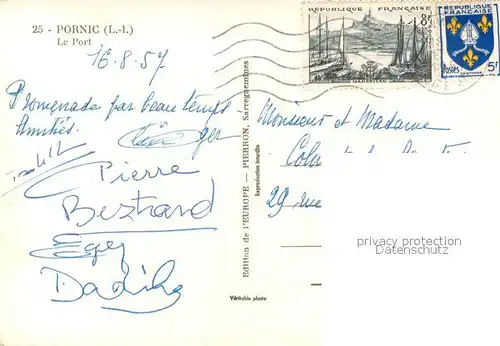 25 - PORNIC (L.-I.)
Le Port
16.8.57
Promenade par beau temps
Amitiés.
Pierre
Bertrand
Édition de l'EUROPE — PIERRON, Sarreguemines
Reproduction interdite
Véritable photo
RÉPUBLIQUE FRANÇAISE
8F
MARSEILLE
RÉPUBLIQUE
FRANÇAISE
POSTES
5F
Monsieur et Madame
29 rue
privacy protection
Datenschutz